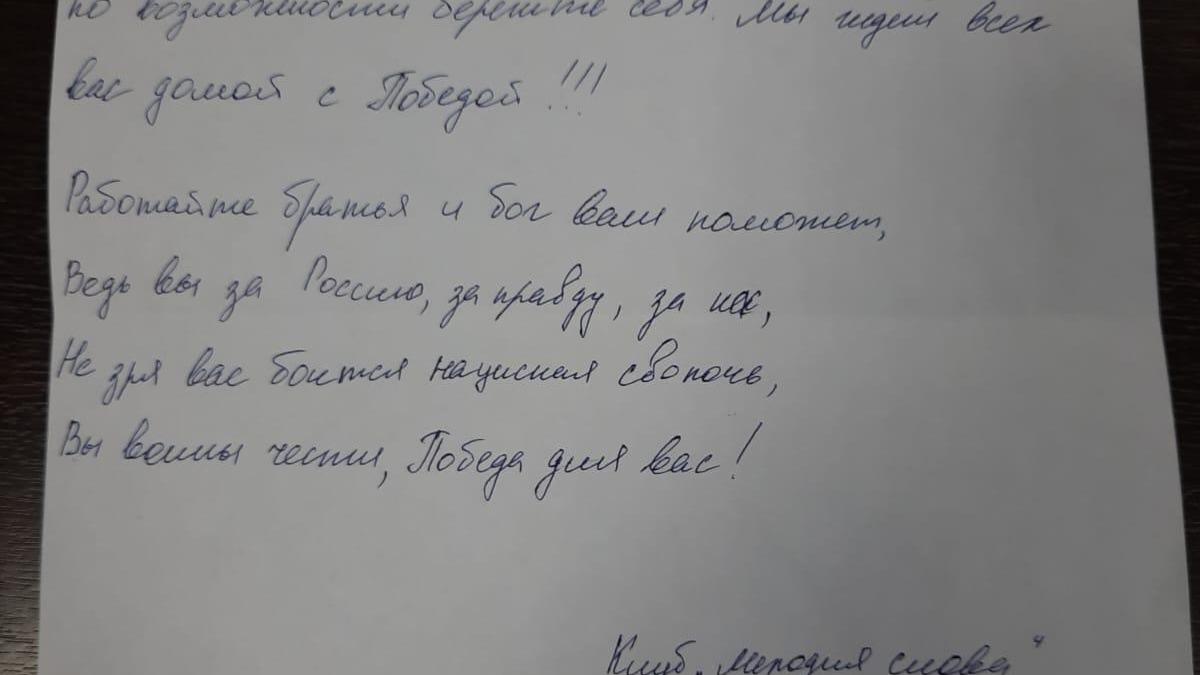 по возможности берегите себя. Мы ждем всех
вас домой с Победой!!!
Работайте братья и бог вам поможет,
Ведь вы за Россию, за правду, за нас,
Не зря вас боится нациская сволочь,
Вы воины чести, Победа для вас!
Клуб „Мелодия слова"